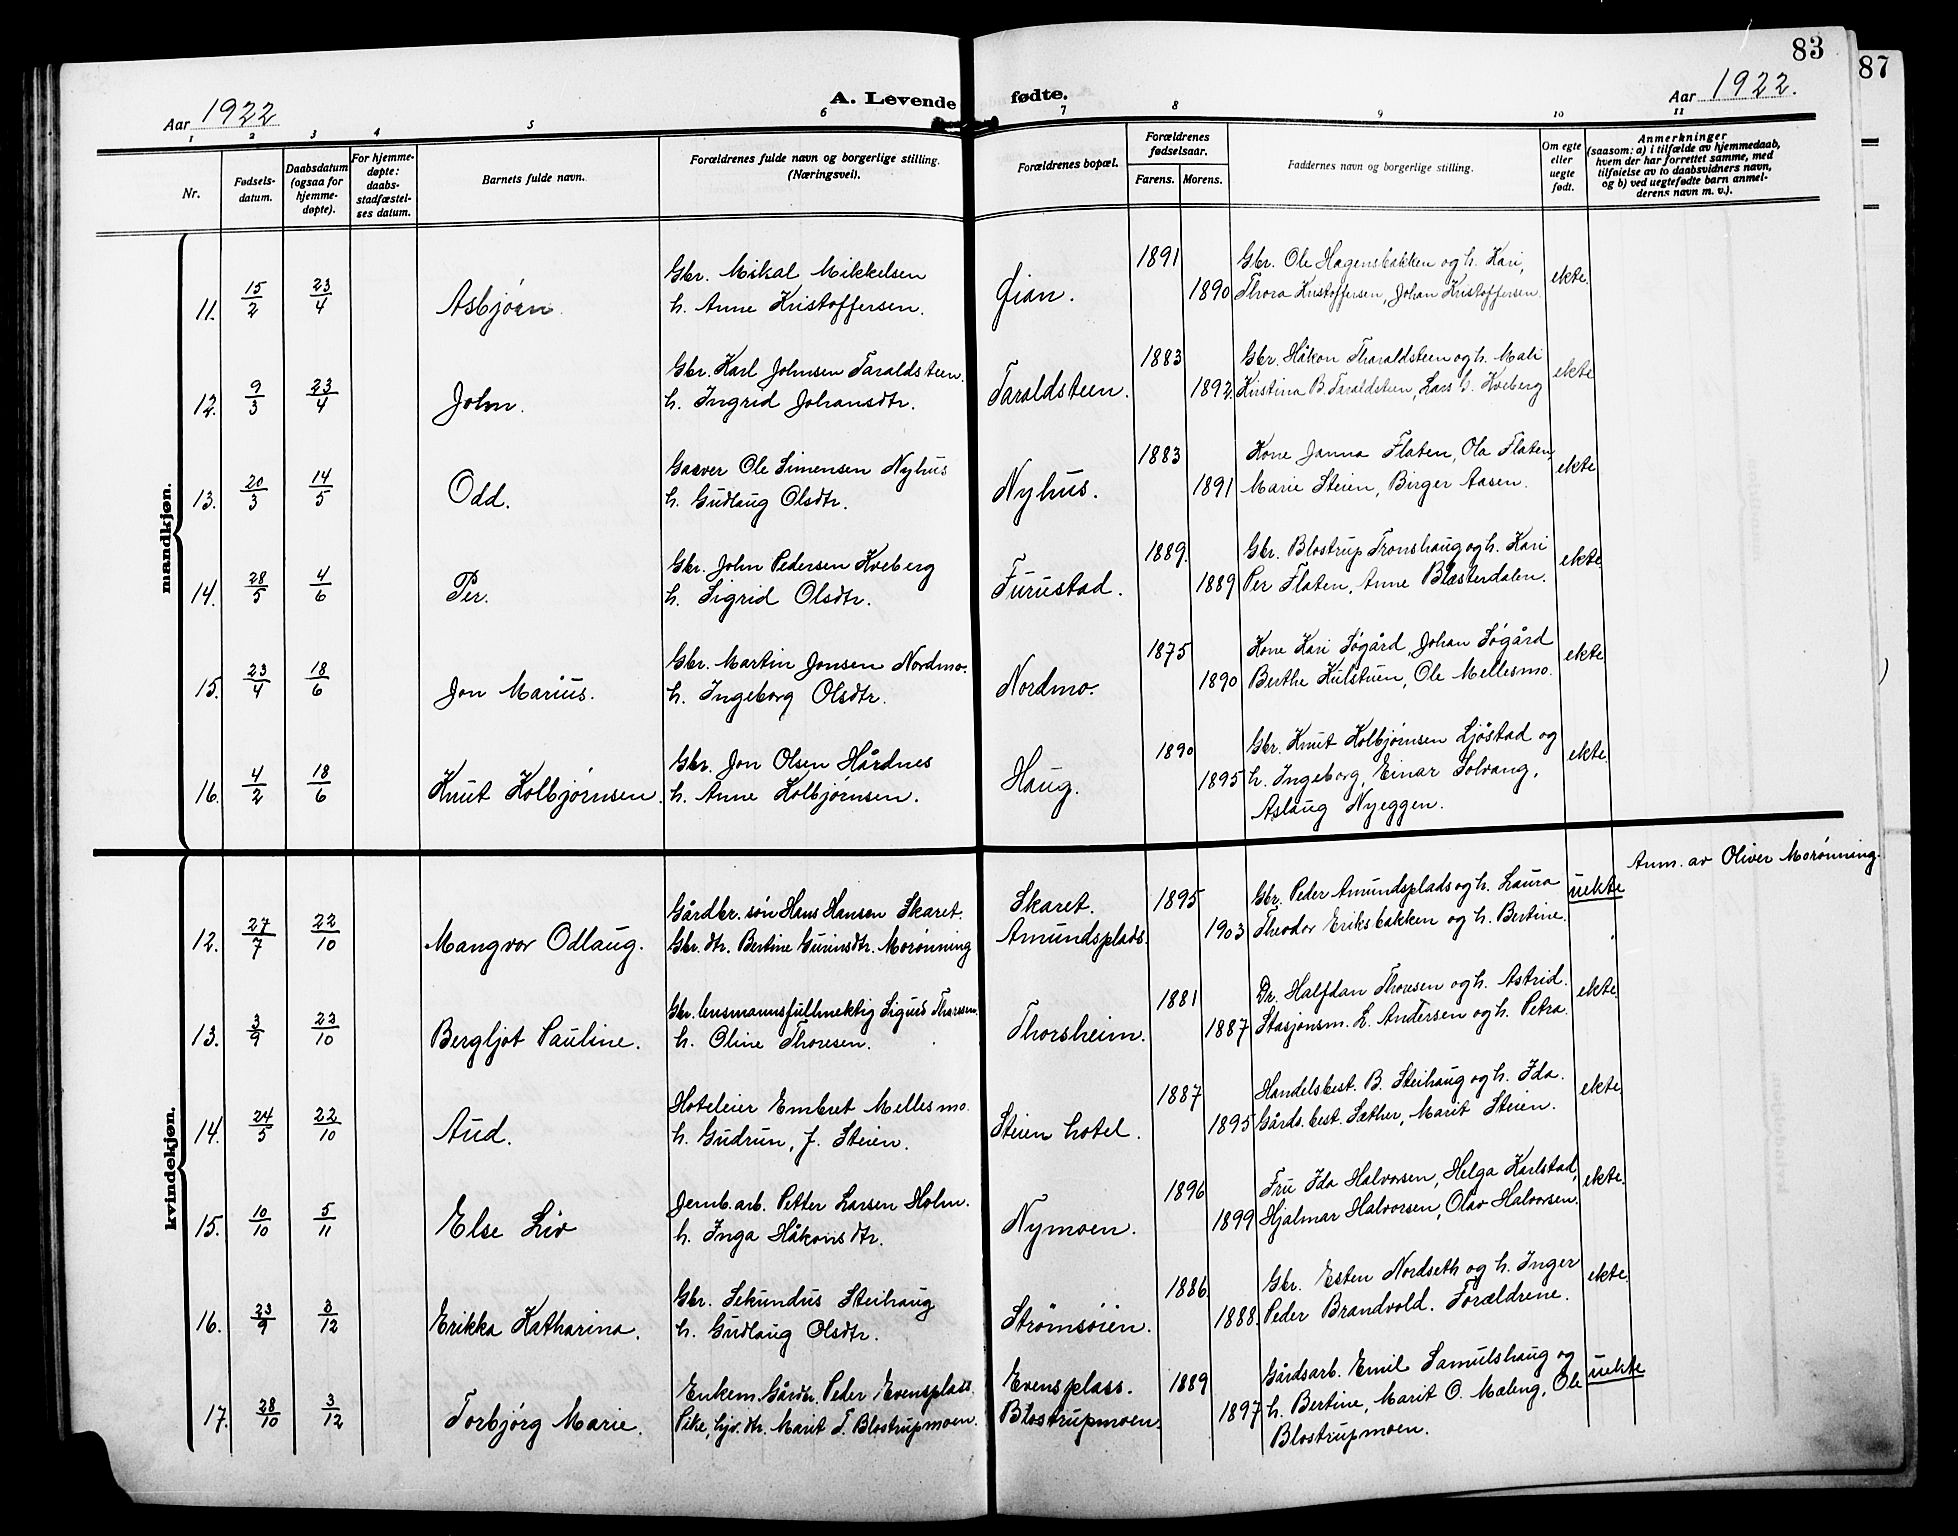 83
87
Aar 1922
A. Levende fødte.
Aar 1922.
1 2 3 4 5 6 7 8 9 10 11
Nr.
Fødsels-
datum.
Daabsdatum
(ogsaa for
hjemme-
døpte).
For hjemme-
døpte:
daabs-
stadfæstel-
ses datum.
Barnets fulde navn.
Forældrenes fulde navn og borgerlige stilling.
(Næringsvei).
Forældrenes bopæl.
Forældrenes
fødselsaar.
Farens. Morens.
Faddernes navn og borgerlige stilling.
Om egte
eller
uegte
født.
Anmerkninger
(saasom: a) i tilfælde av hjemmedaab,
hvem der har forrettet samme, med
tilføielse av to daabsvidners navn,
og b) ved uegtefødte barn anmel-
derens navn m. v.).
mandkjøn.
11. 15/2 23/4 Asbjørn.
Gbr. Mikal Mikkelsen
h. Anne Kristoffersen.
Øian.
1891
1890
Gbr. Ole Hagensbakken og h. Kari,
Thora Kristoffersen, Johan Kristoffersen.
ekte.
12. 9/3 23/4 John.
Gbr. Karl Johnsen Taraldsteen.
h. Ingrid Johansdtr.
Taraldsteen.
1883
1892.
Gbr. Håkon Tharaldsteen og h. Mali
Kristina B. Taraldsteen, Lars G. Kveberg
ekte
13. 20/3 14/5 Odd.
Garver Ole Simensen Nyhus
h. Gudlaug Olsdtr.
Nyhus.
1883
1891
Kone Janna Flaten, Ola Flaten
Marie Steien, Birger Aasen.
ekte
14. 28/5 4/6 Per.
Gbr. John Pedersen Kveberg
h. Sigrid Olsdtr.
Furustad.
1889.
1889
Gbr. Blostrup Tronshaug og h. Kari
Per Flaten, Anne Blæsterdalen.
ekte.
15. 23/4 18/6 Jon Marius.
Gbr. Martin Jonsen Nordmo.
h. Ingeborg Olsdtr.
Nordmo.
1875
1890
Kone Kari Søgård, Johan Søgård
Berthe Kulstuen, Ole Mellesmo.
ekte
16. 4/2 18/6 Knut Kolbjørnsen.
Gbr. Jon Olsen Hårdnes
h. Anne Kolbjørnsen.
Haug.
1890
1895
Gbr. Knut Kolbjørnsen Ljøstad og
h. Ingeborg, Einar Solvang,
Aslaug Nyeggen.
ekte.
kvindekjøn.
12. 27/7 22/10 Mangvor Odlaug.
Gårdbr. søn Hans Hansen Skaret.
Gbr. dtr. Bertine Guinsdtr. Morønning
Skaret.
Amundsplads.
1895
1903
Gbr. Peder Amundsplads og h. Laura
Theodor Eriksbakken og h. Bertine.
uekte
Anm. av Oliver Morønning.
13. 3/9 23/10 Bergljot Pauline.
Gbr. lensmannsfullmektig Sigurd Thoresen.
h. Oline Thoresen.
Thorsheim.
1881
1887
Dr. Halfdan Thoresen og h. Astrid.
Stasjonsm. L. Andersen og h. Petra.
ekte.
14. 24/5 22/10 Aud.
Hoteleier Embret Mellesmo.
h. Gudrun, f. Steien.
Steien hotel.
1887
1895
Handelsbest. B. Steihaug og h. Ida.
Gårds.best. Sæther, Marit Steien.
ekte
15. 10/10 5/11 Else Liv
Jernb.arb. Petter Larsen Holm.
h. Inga Håkonsdtr.
Nymoen.
1896
1899
Fru Ida Halvorsen, Helga Karlstad,
Hjalmar Halvorsen, Olav Halvorsen.
ekte.
16. 23/9 3/12 Erikka Katharina.
Gbr. Sekundus Steihaug
h. Gudlaug Olsdtr.
Strømsøien.
1886.
1888.
Gbr. Esten Nordseth og h. Inger
Peder Brandvold. Forældrene.
ekte.
17. 28/10 3/12 Torbjørg Marie.
Enkem. Gårdbr. Peder Evensplass.
Pike, hjv. dtr. Marit T. Blostrupmoen.
Evensplass.
Blostrupmoen.
1889
1897
Gårdsarb. Emil Samulshaug og
h. Bertine, Marit O. Mæleng, Ole
Blostrupmoen.
uekte